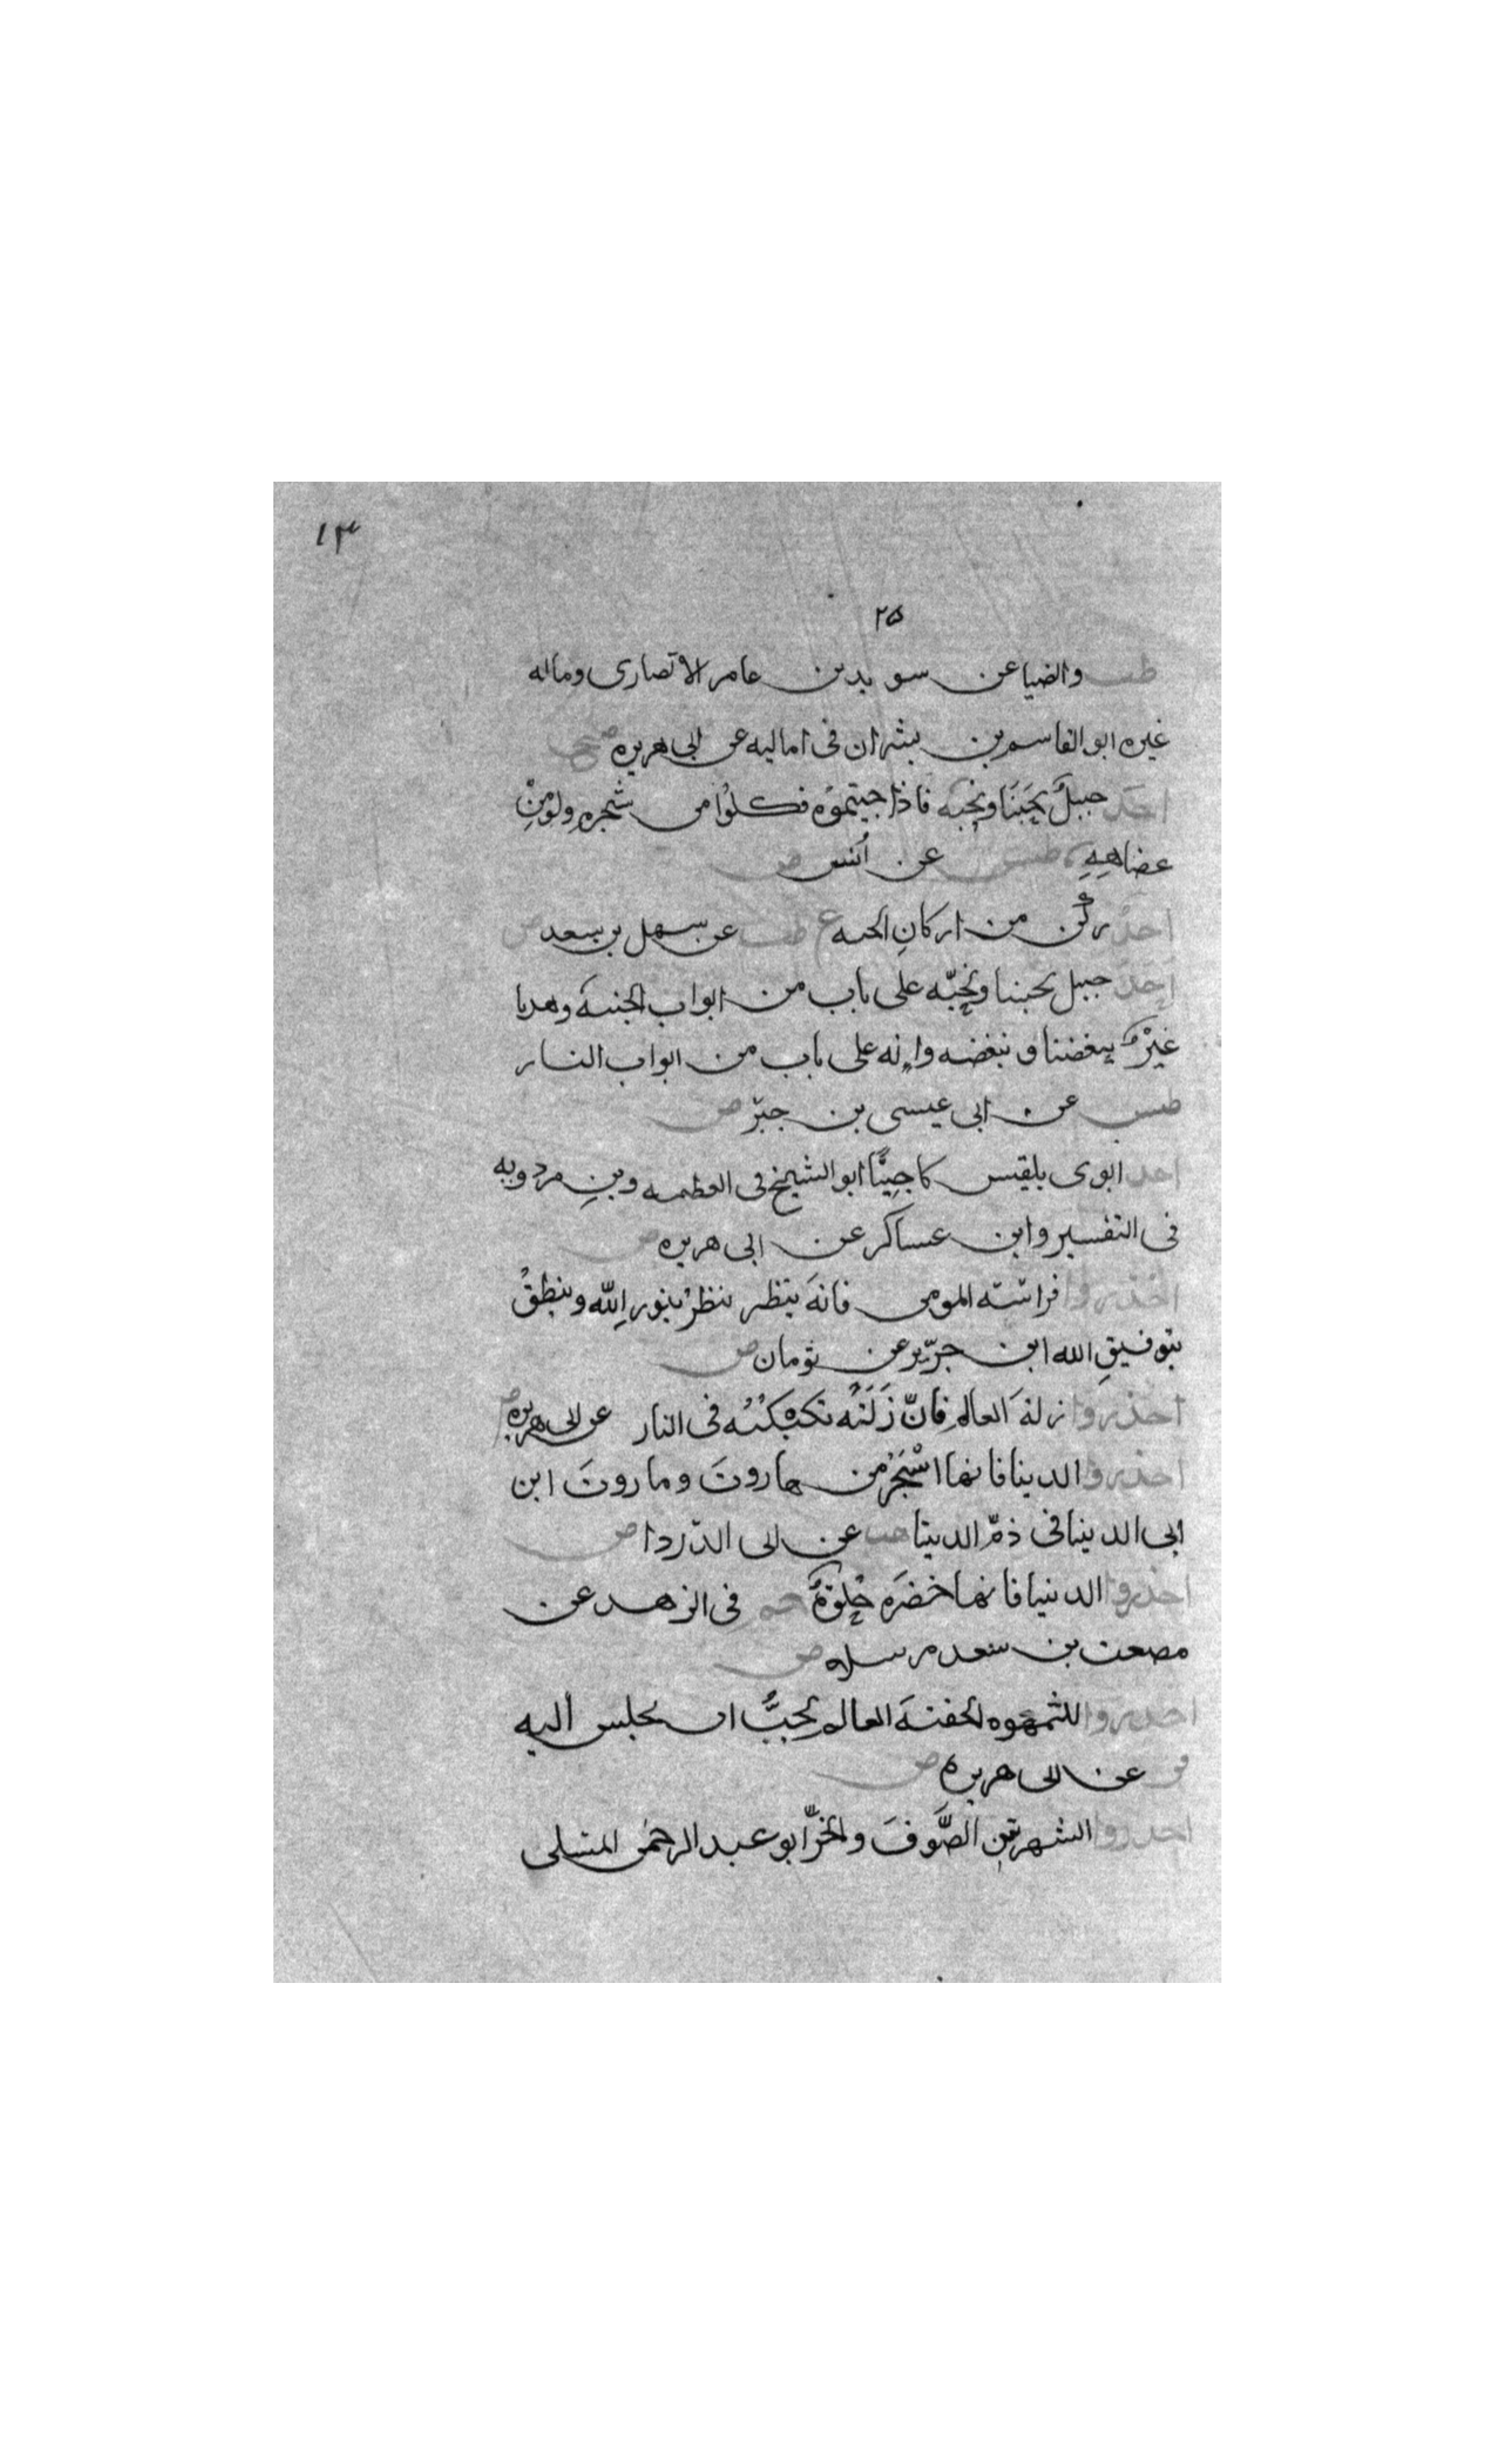 ١٣
٢٥
طب والضيا عن سويد بن عامر الانصارى وماله
غيره ابو القاسم بن بشران فى اماليه عن ابى هريره صح
احد جبلٌ يحبنَا ونحبه فاذا جيتموُه فكلوُا من شجرهِ ولو منِ
عضاههِ طس عن انُس ص
احدُ ركن من اركانِ الجنه ع طب عن سهل بن سعد ص
احَد جبل يحبنا ونحِبّه على باب من ابواب الجنه وهدا
عَيْر يبغضنا ونبغضه وانه على باب من ابواب النار
طس عن ابى عيسى بن جبّر ص
احد ابوى بلقيس كا جِنيًّا ابو الشيخ فى العظمه وبنِ مردويه
فى التفسير وابن عساكر عن ابى هريره ص
احذروا فراسته المومن فانهَ ينظر ينظرُ بنور اللّه وينطقُ
بتوفيقِ الله ابن جرّير عن ثومان ص
احذروا زلهَ العالمِ فانّ زَلَتَهُ تكبكُبُه فى النار عن ابى هريره ص
احذروا الدينا فانها اسْحَرُ من هاروتَ وماروتَ ابن
ابى الدينا فى ذمّ الدينا هب عن ابى الدّردا ص
احذروا الدنيا فانها خضرَه حُلِوَهٌ حم فى الزهد عن
مصعت بن سعد مرسلا ص
احذروا الشهوه الخفيهَ العالم يُحِبُّ ان يجلس اليه
فر عن ابى هريره ص
احذروا الشهرتين الصُّوفَ والخزّ ابو عبد الرحمٰن السلمى